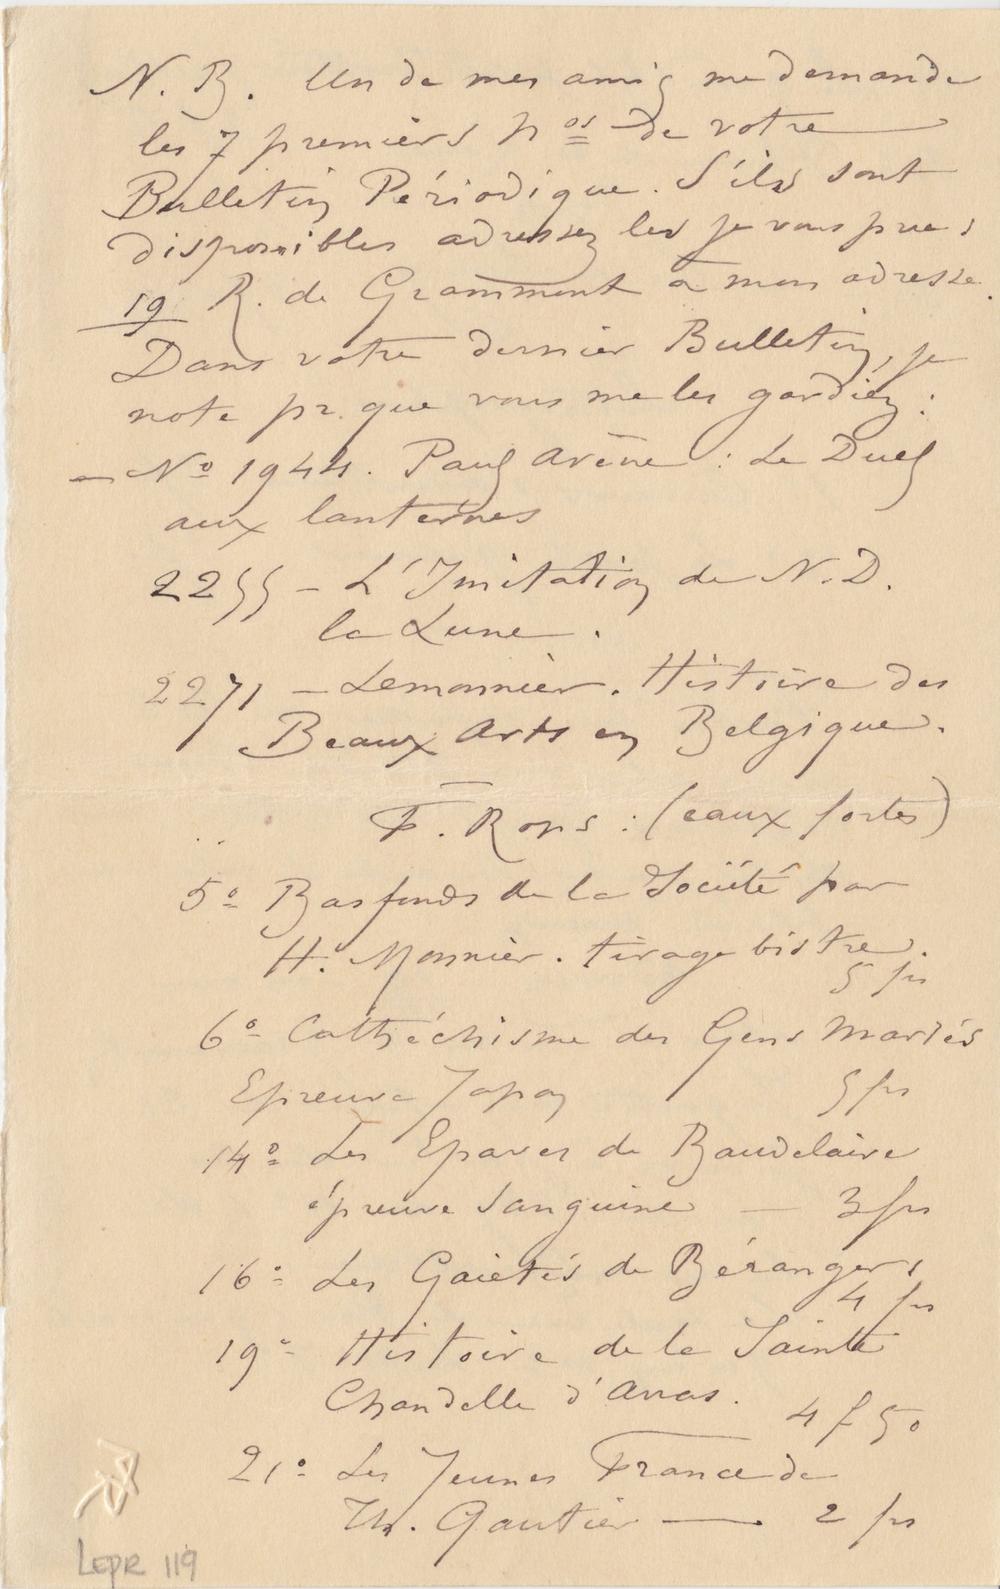 N. B. Un de mes amis me demande
les 7 premiers nos de votre
Bulletin Périodique. S'ils sont
disponibles adressez les je vous prie,
19 R. de Grammont à mon adresse.
Dans votre dernier Bulletin, je
note pr. que vous me les gardiez :
- No 1944. Paul Arène : Le Duel
aux lanternes
2255 - L'Imitation de N. D.
la Lune.
2271 - Lemonnier. Histoire des
Beaux Arts en Belgique.
F. Rops : (eaux fortes)
5o Bas fonds de la Société par
H. Monnier. tirage bistre.
5 frs
6o Cathéchisme des Gens Mariés
Epreuve Japon 5 frs
14o Les Epaves de Baudelaire
épreuve sanguine — 3 frs
16o Les Gaietés de Béranger,
4 frs
19o Histoire de la Sainte
Chandelle d'Arras.
4 f 50
21o Les Jeunes France de
Th. Gautier — 2 frs
LEPR 119